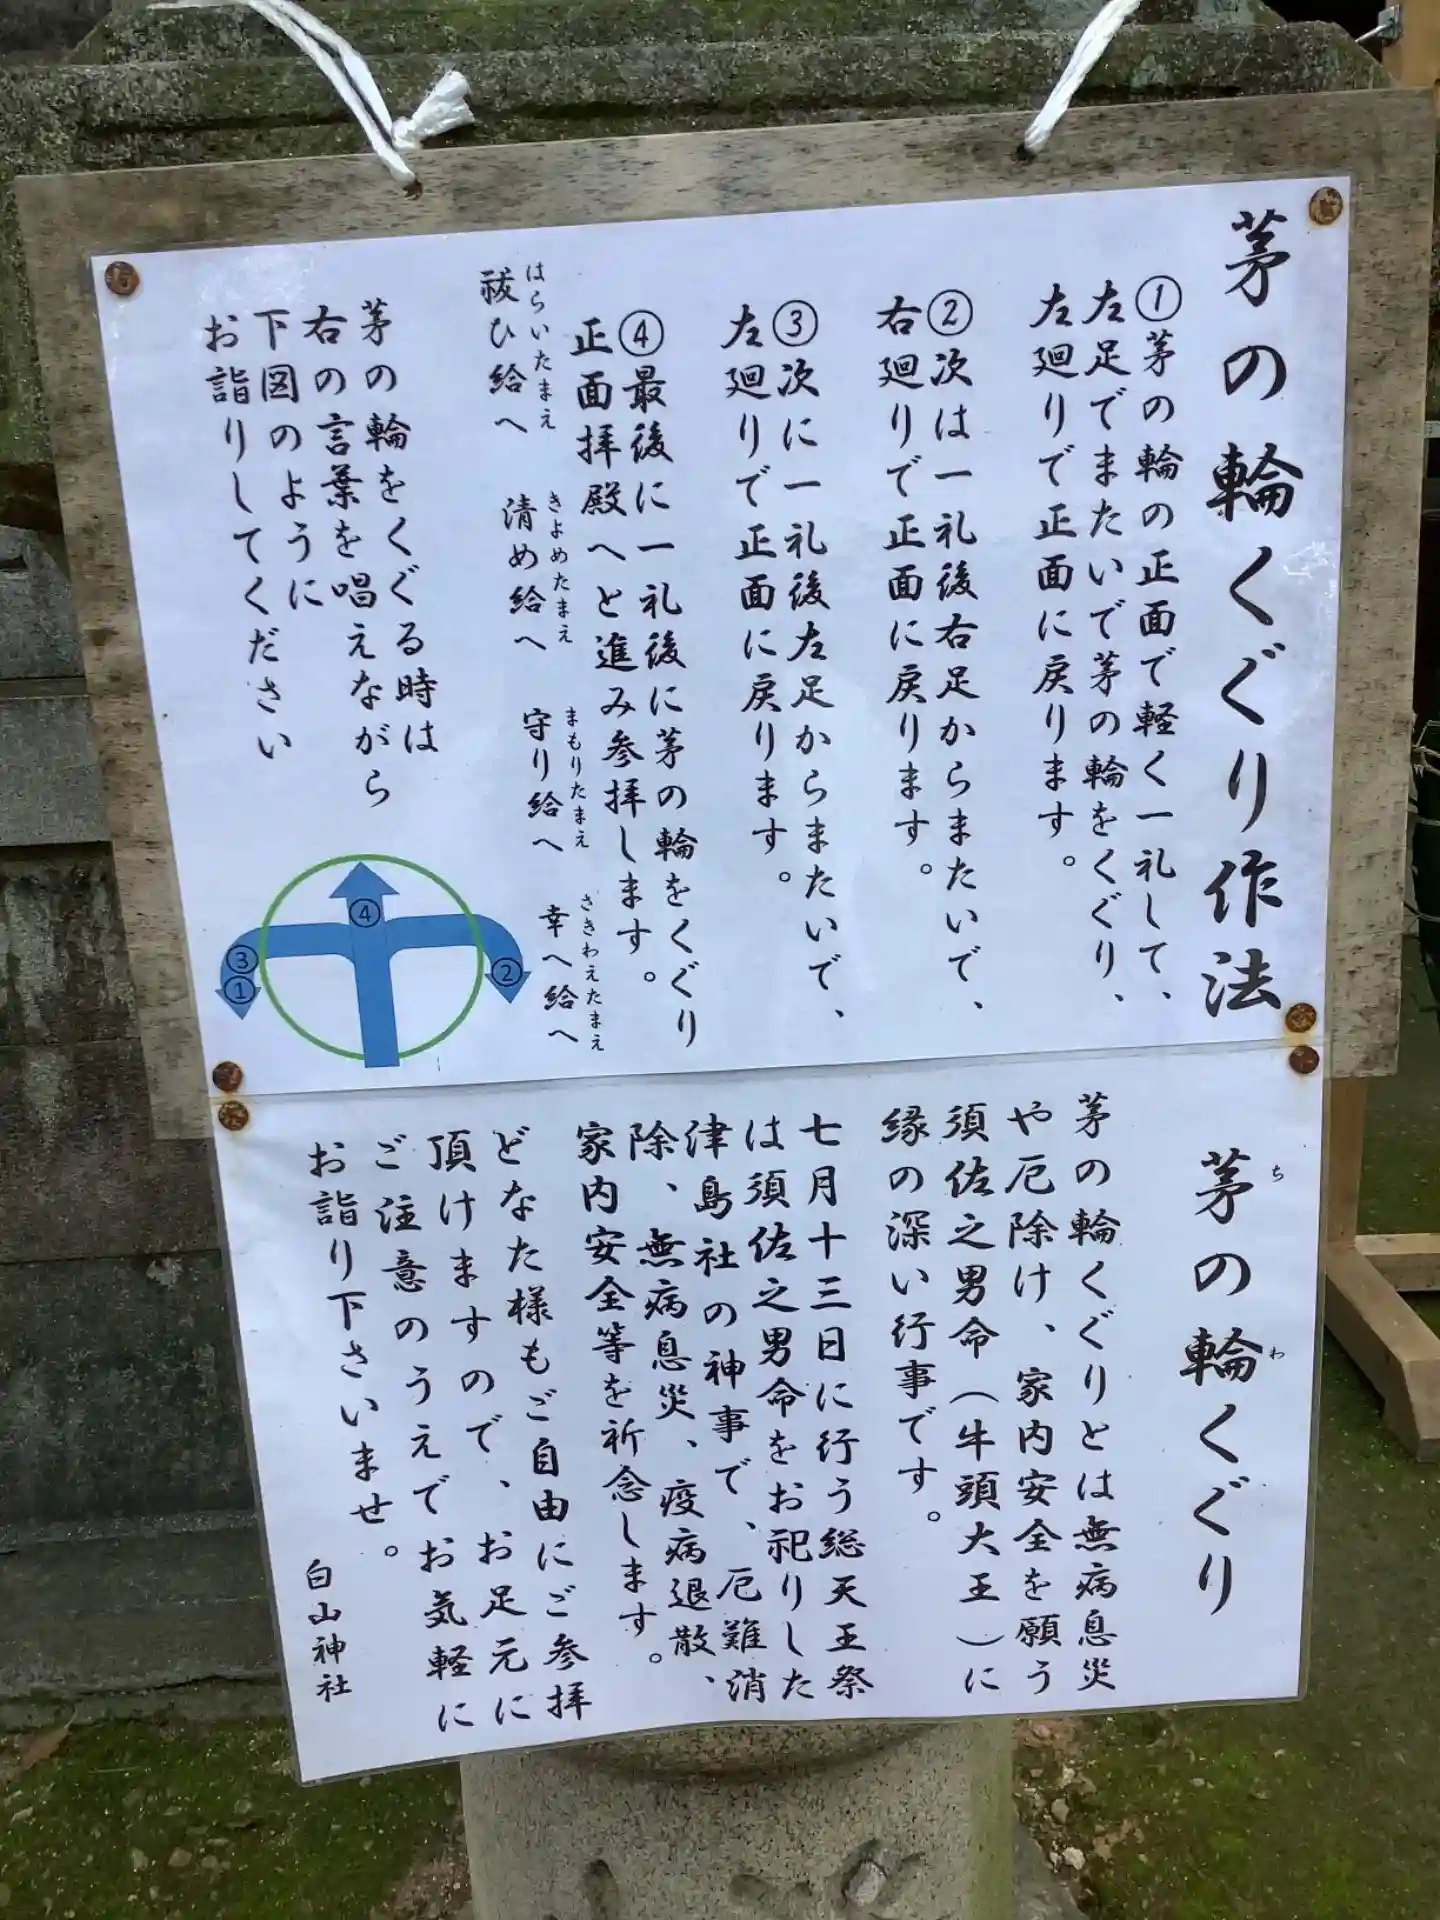 茅の輪くぐり作法
①茅の輪の正面で軽く一礼して、
左足でまたいで茅の輪をくぐり、
左廻りで正面に戻ります。
②次は一礼後右足からまたいで、
右廻りで正面に戻ります。
③次に一礼後左足からまたいで、
左廻りで正面に戻ります。
④最後に一礼後に茅の輪をくぐり
正面拝殿へと進み参拝します。
はらいたまえ きよめたまえ まもりたまえ さきわえたまえ
祓ひ給へ 清め給へ 守り給へ 幸へ給へ
茅の輪をくぐる時は
右の言葉を唱えながら
下図のように
お詣りしてください
④
③
①
②
ち わ
茅の輪くぐり
茅の輪くぐりとは無病息災
や厄除け、家内安全を願う
須佐之男命(牛頭大王)に
縁の深い行事です。
七月十三日に行う総天王祭
は須佐之男命をお祀りした
津島社の神事で、厄難消
除、無病息災、疫病退散、
家内安全等を祈念します。
どなた様もご自由にご参拝
頂けますので、お足元に
ご注意のうえでお気軽に
お詣り下さいませ。
白山神社